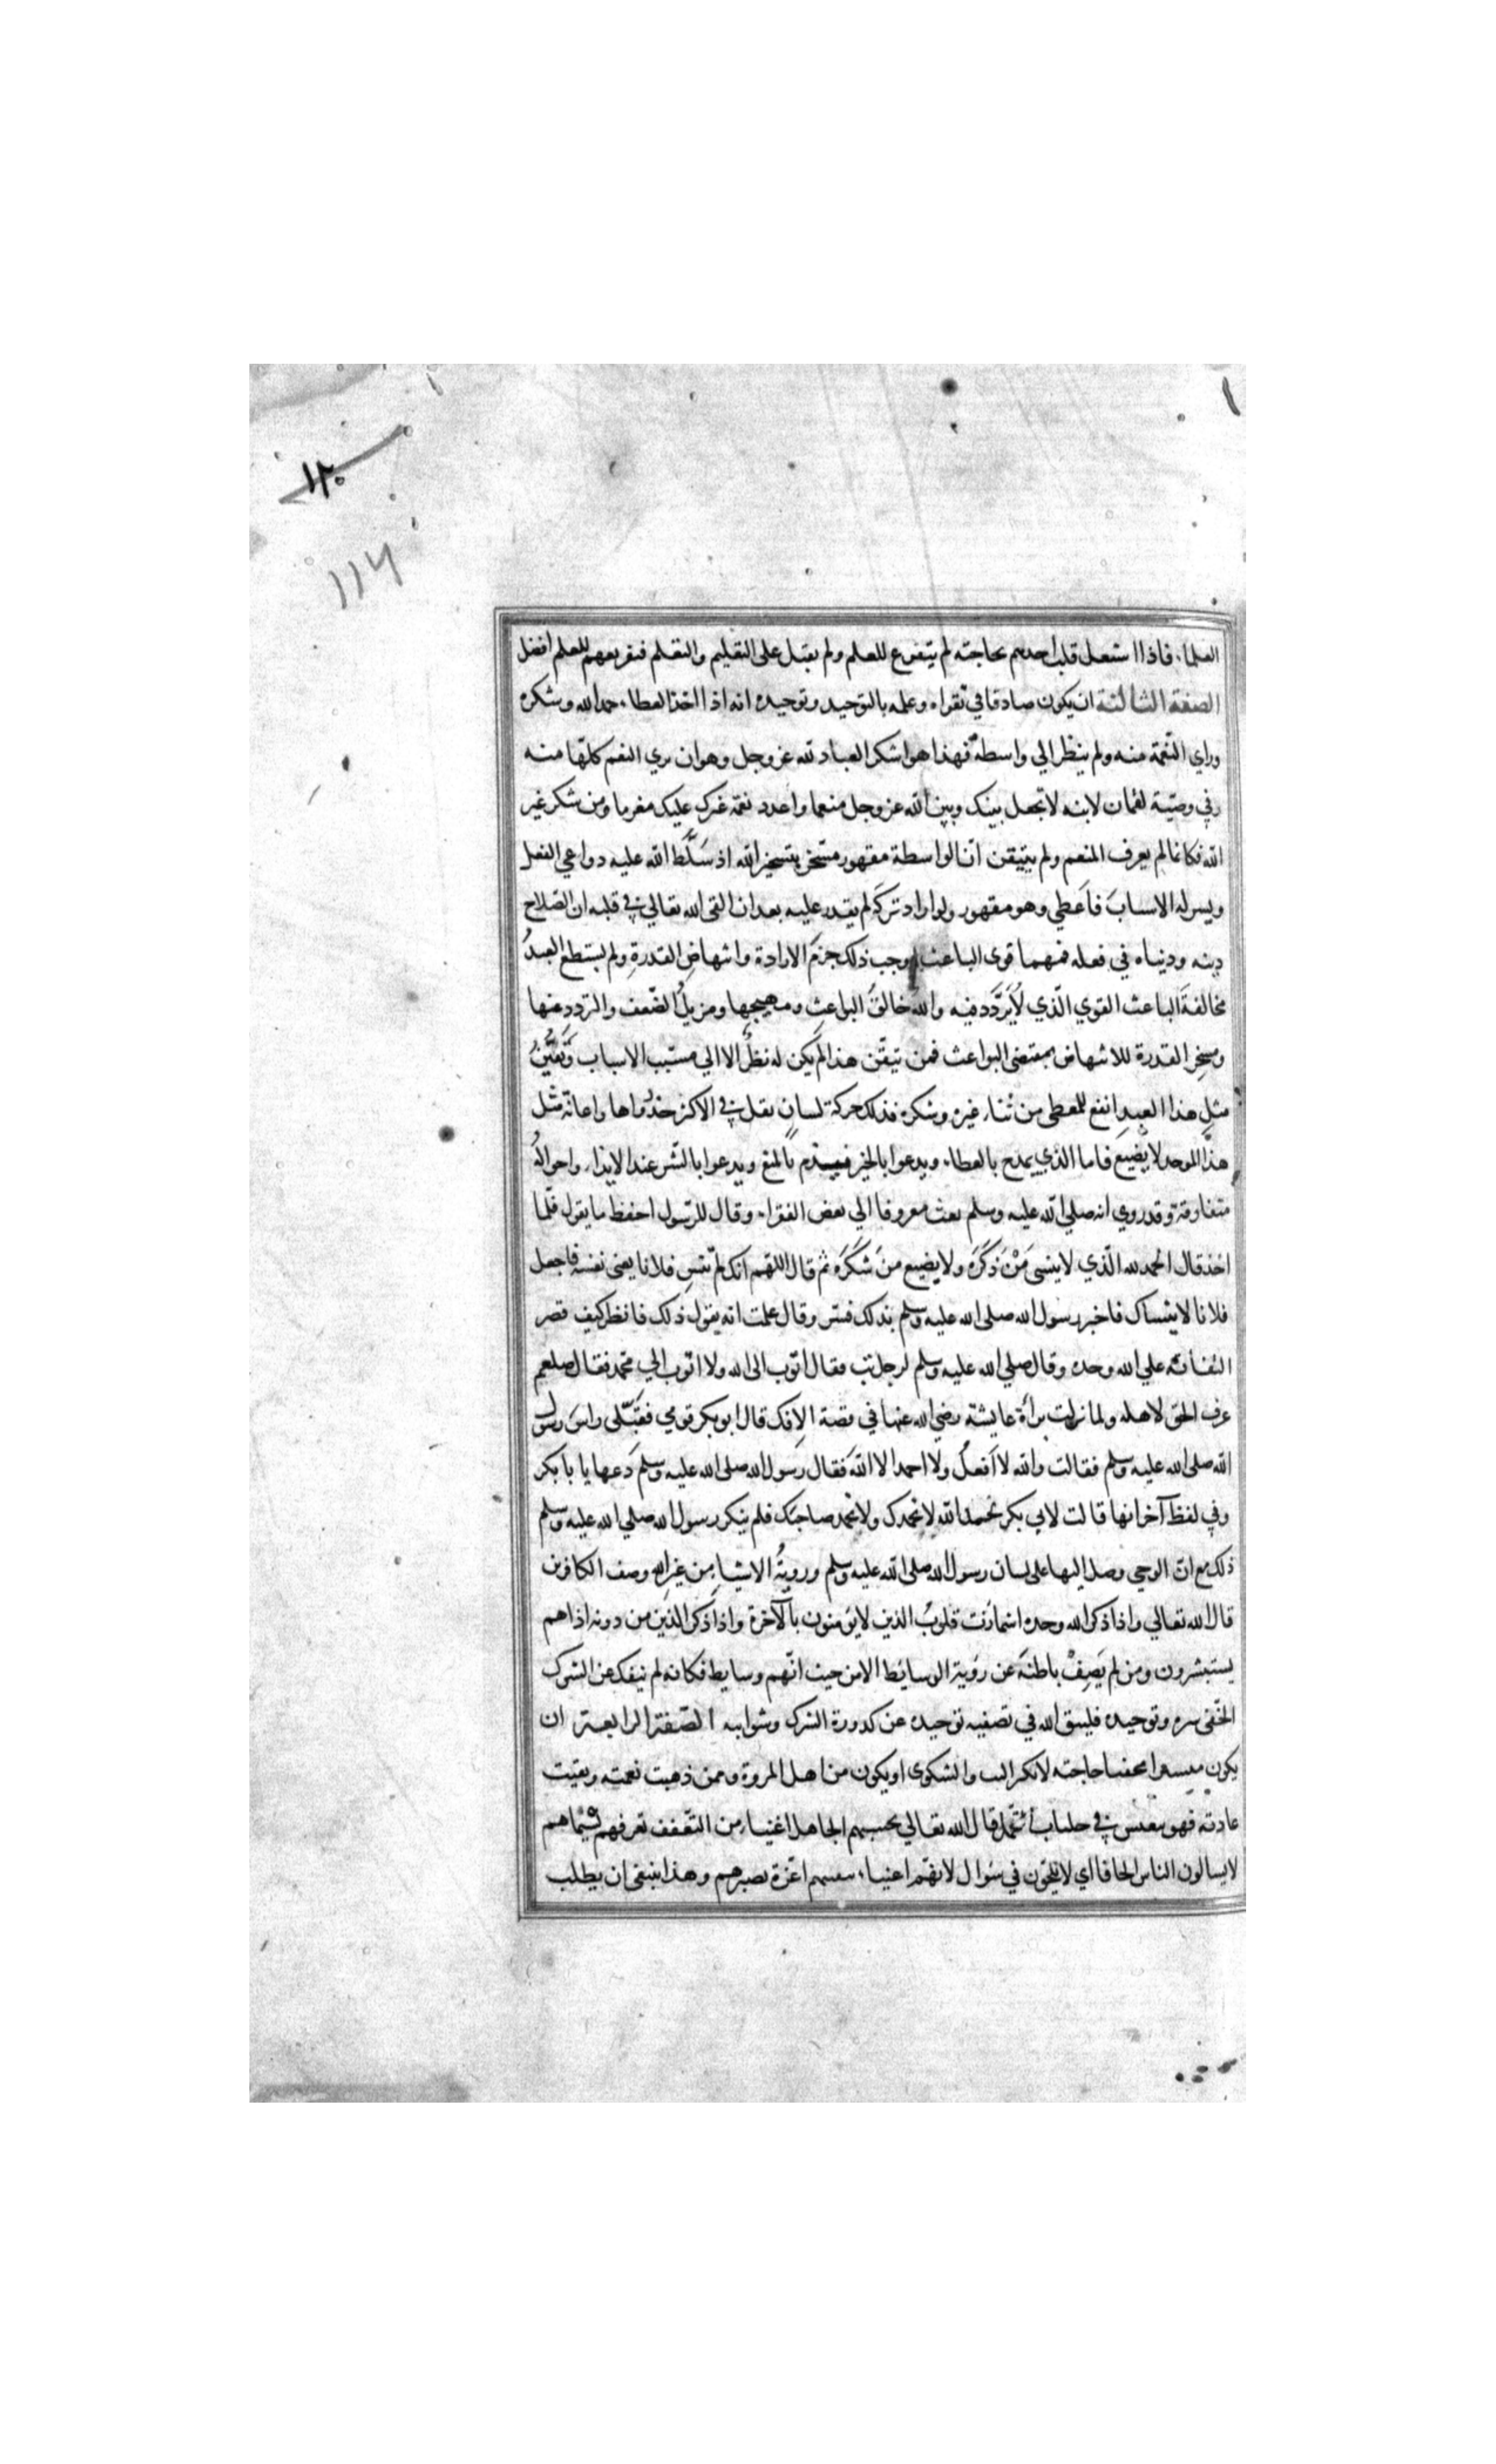 ١٢٠
١١٦
العلماء فاذا اشتغل قلب احدهم بحاجته لم يتفرغ للعلم ولم يقبل على التعليم والتعلم فتفريغهم للعلم افضل
الصفة الثالثة ان يكون صادقا في تقواه وعلمه بالتوحيد وتوحيده انه اذا اخذ العطاء حمد الله وشكره
وراي النعمة منه ولم ينظر الي واسطة فهذا هو اشكر العباد لله عز وجل وهو ان يري النعم كلها منه
وفي وصية لقمان لابنه لا تجعل بينك وبين الله عز وجل منعما واعدد نعمة غيرك عليك مغرما ومن شكر غير
الله فكانما لم يعرف المنعم ولم يتيقن ان الواسطة مقهور مسخر بتسخير الله اذ سلّط الله عليه دواعي الفعل
ويسر له الاسباب فاعطي وهو مقهور ولو اراد تركه لم يقدر عليه بعد ان القى الله تعالي في قلبه ان الصلاح
دينه ودنياه في فعله فمهما قوى الباعث اوجب ذلك جزم الارادة وانتهاض القدرة ولم يستطع العبد
مخالفة الباعث القوي الذي لا تردد فيه والله خالق البواعث ومهيجها ومزيل الضعف والتردد عنها
ومسخر القدرة للانتهاض بمقتضى البواعث فمن تيقن هذا لم يكن له نظر الا الي مسبب الاسباب وتيقن
مثل هذا العبد انفع للمعطى من ثناء غيره وشكره فذلك حركة لسان يقل في الاكثر جدواها واعانة مثل
هذا الموحد لا يضيع فاما الذي يمدح بالعطاء ويدعوا بالخير فسيذم بالمنع ويدعوا بالشر عند الايذاء واحواله
متفاوتة وقد روي انه صلي الله عليه وسلم بعث معروفا الي بعض الفقراء وقال للرسول احفظ ما يقول فلما
اخذ قال الحمد لله الذي لا ينسى مَنْ ذكَرَه ولا يضيع منَ شكَرَه ثم قال اللهم انك لم تنس فلانا يعنى نفسه فاجعل
فلانا لا ينساك فاخبر رسول الله صلى الله عليه وسلم بذلك فسر وقال علمت انه يقول ذلك فانظر كيف قصر
التفاته علي الله وحده وقال صلي الله عليه وسلم لرجل تب فقال اتوب الى الله ولا اتوب الي محمد فقال صلعم
عرف الحق لاهله ولما نزلت براة عايشة رضي الله عنها في قصة الافك قال ابو بكر قومي فقبّلى راس رسول
الله صلى الله عليه وسلم فقالت والله لا افعل ولا احمد الا الله فقال رسول الله صلى الله عليه وسلم دعها يا با بكر
وفي لفظ آخر انها قالت لابي بكر نحمد الله لا نحمدك ولا نحمد صاحبك فلم ينكر رسول الله صلي الله عليه وسلم
ذلك مع ان الوحي وصل اليها على لسان رسول الله صلى الله عليه وسلم ورويةُ الاشياء من غير الله وصف الكافرين
قال الله تعالي واذا ذكر الله وحده اشمازت قلوب الذين لا يؤمنون بالآخرة واذا ذكر الذين من دونه اذا هم
يستبشرون ومن لم يَصِفْ باطنه عن روية الوسائط الا من حيث انهم وسايط فكانه لم ينفك عن الشرك
الخفى سره وتوحيده فليتق الله في تصفيه توحيده عن كدورة الشرك وشوايبه الصفة الرابعة ان
يكون مستورا مخفيا حاجته لا يكثر البث والشكوى او يكون من اهل المروة وممن ذهبت نعمته وبقيت
عادته فهو يعيش في جلباب التجمل قال الله تعالي يحسبهم الجاهل اغنياء من التعفف تعرفهم بسيماهم
لا يسالون الناس الحافا اي لا يلحون في سوال لانهم اغنياء بيقينهم اعزة بصبرهم وهذا ينبغى ان يطلب